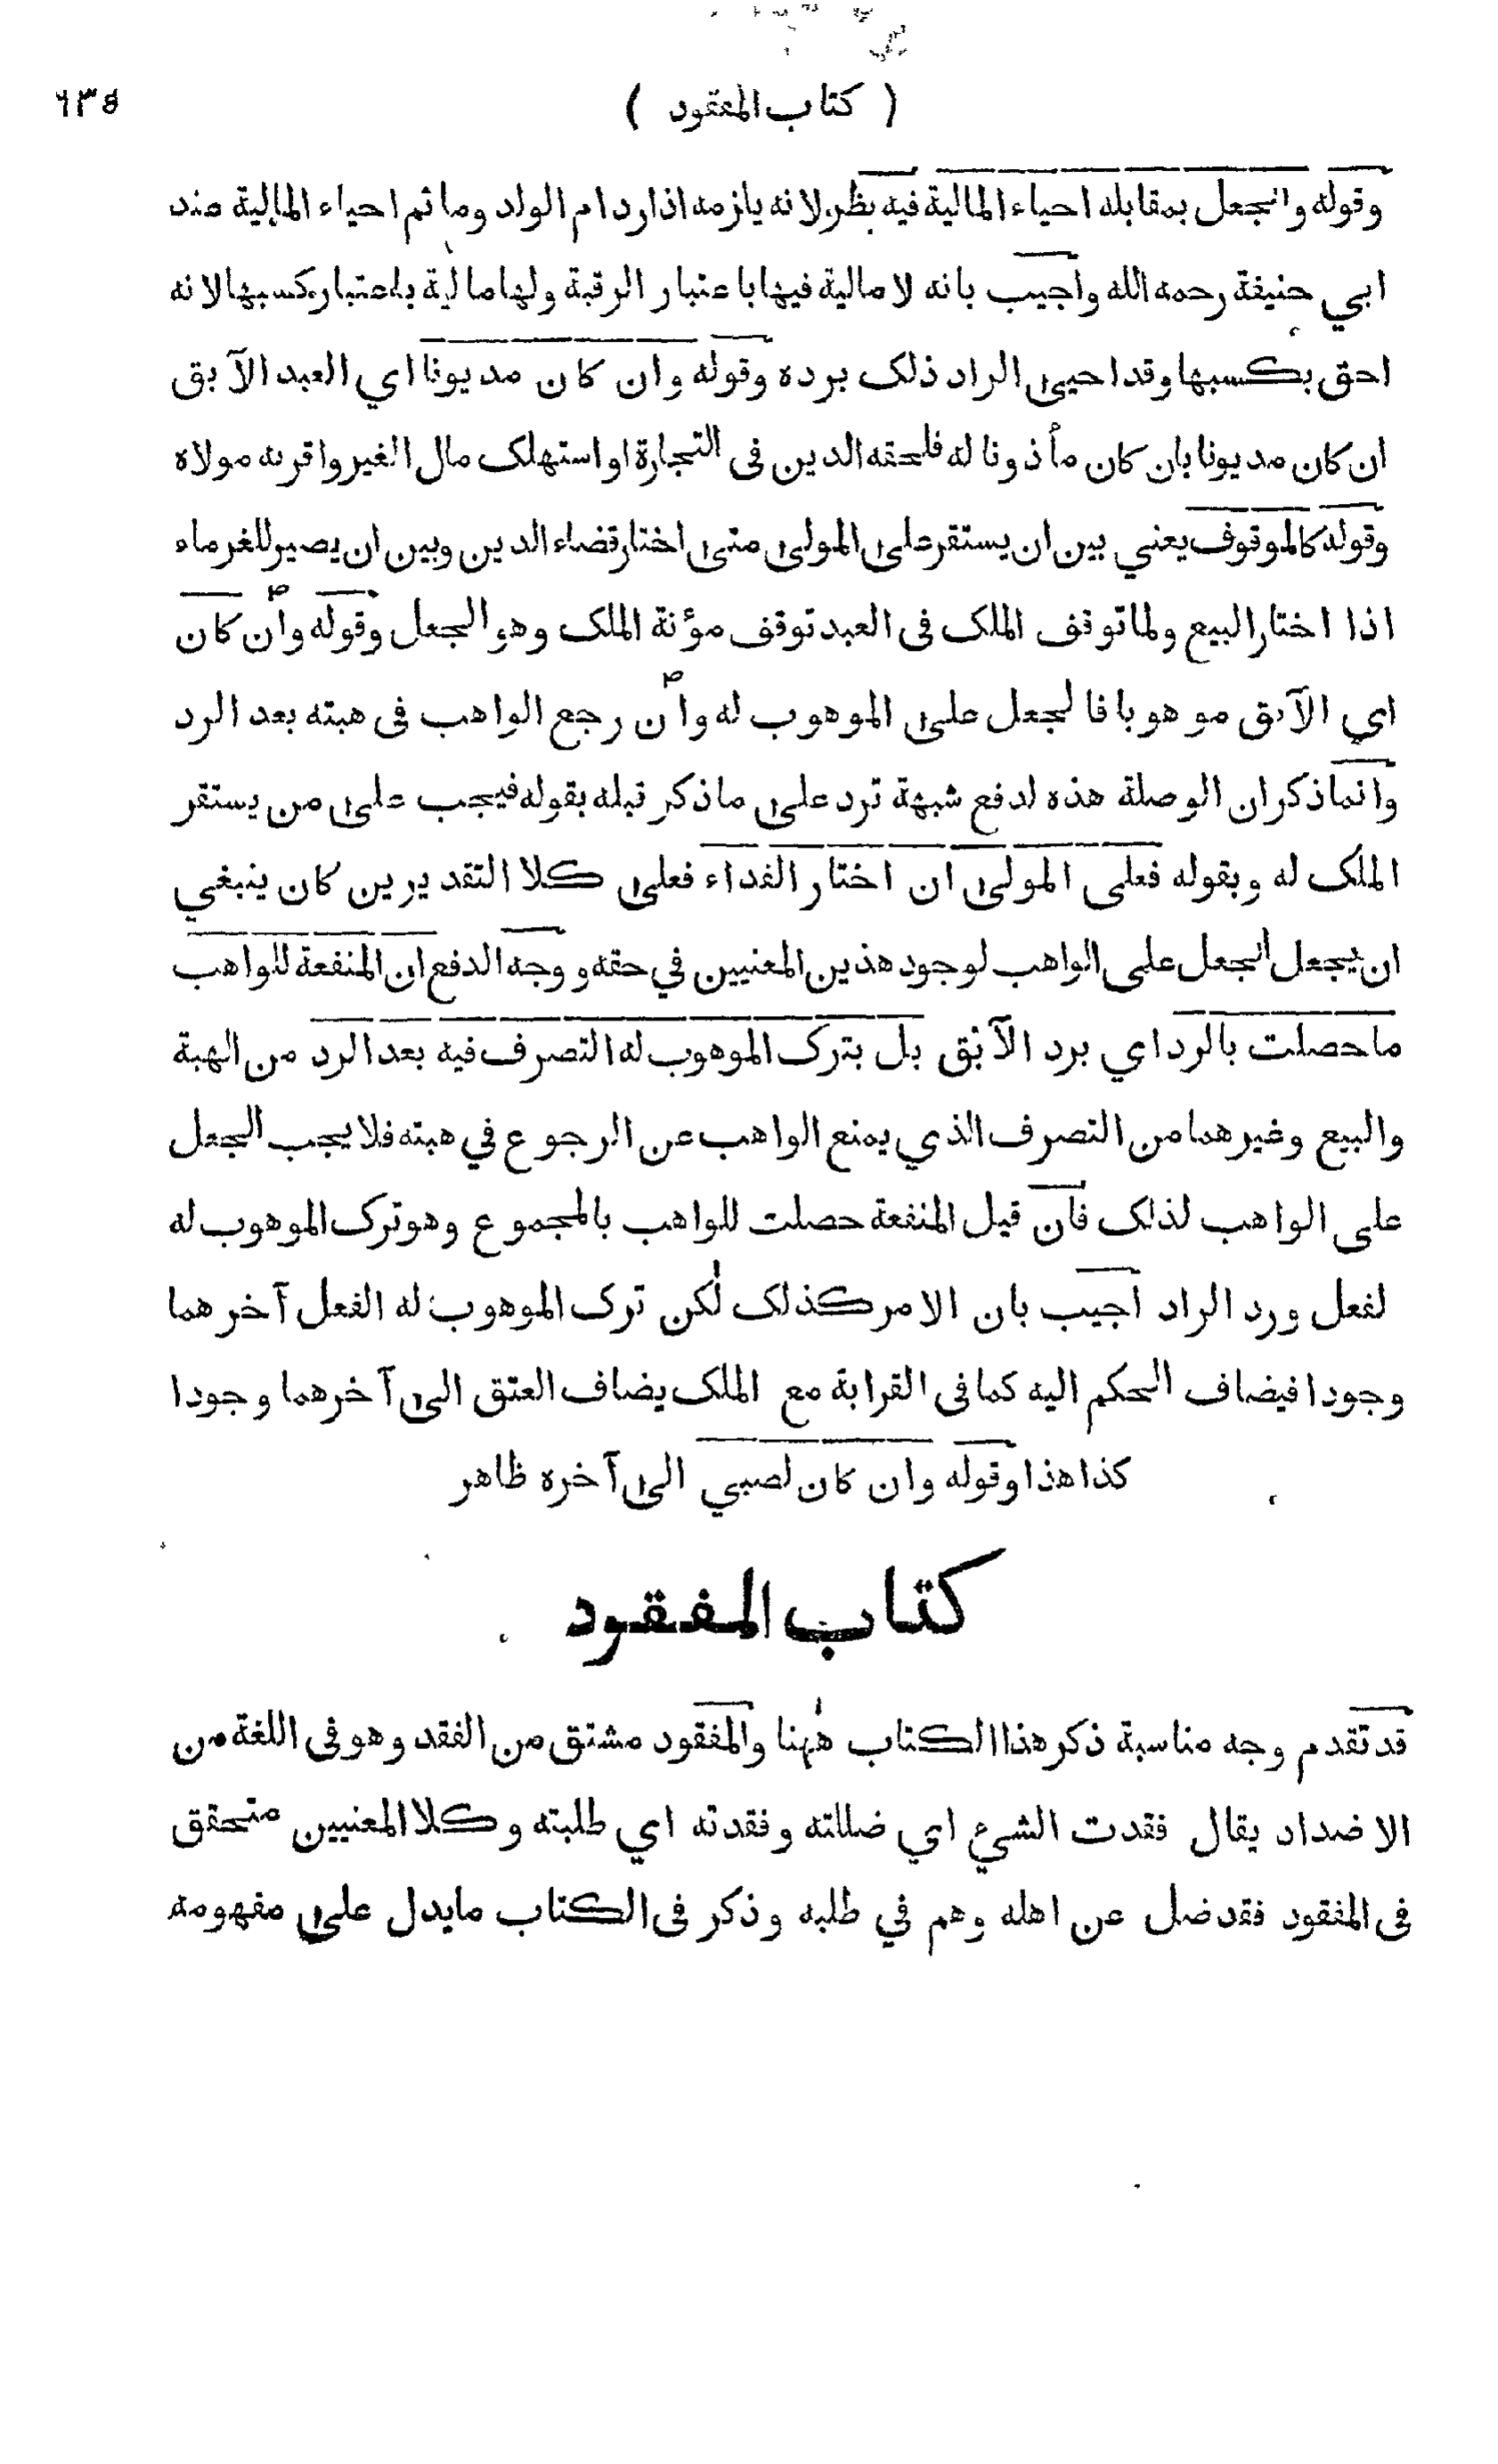 ( كتاب المفقود ) ٦٣٥
وقوله والجعل بمقابله احياء المالية فيه نظر لانه يلزمه اذا رد ام الولد وما ثم احياء المالية عند
ابي حنيفة رحمه الله واجيب بانه لا مالية فيها باعتبار الرقبة ولها مالية باعتبار كسبها لانه
احق بكسبها وقد احيى الراد ذلك برده وقوله وان كان مديونا اي العبد الآبق
ان كان مديونا بان كان مأذونا له فلحقه الدين فى التجارة او استهلك مال الغير واقر به مولاه
وقوله كالموقوف يعني بين ان يستقر على المولى متى اختار قضاء الدين وبين ان يصير للغرماء
اذا اختار البيع ولما توقف الملك فى العبد توقف مؤنة الملك وهو الجعل وقوله وان كان
اي الآبق موهوبا فالجعل على الموهوب له وان رجع الواهب فى هبته بعد الرد
وانما ذكر ان الوصلة هذه لدفع شبهة ترد على ما ذكر قبله بقوله فيجب على من يستقر
الملك له وبقوله فعلى المولى ان اختار الفداء فعلى كلا التقديرين كان ينبغي
ان يجعل الجعل على الواهب لوجود هذين المعنيين في حقه ووجه الدفع ان المنفعة للواهب
ما حصلت بالرد اي برد الآبق بل بترك الموهوب له التصرف فيه بعد الرد من الهبة
والبيع وغيرهما من التصرف الذي يمنع الواهب عن الرجوع في هبته فلا يجب الجعل
على الواهب لذلك فان قيل المنفعة حصلت للواهب بالمجموع وهو ترك الموهوب له
لفعل ورد الراد اجيب بان الامر كذلك لكن ترك الموهوب له الفعل آخرهما
وجودا فيضاف الحكم اليه كما فى القرابة مع الملك يضاف العتق الى آخرهما وجودا
كذا هذا وقوله وان كان لصبي الى آخره ظاهر
كتاب المفقود
قد تقدم وجه مناسبة ذكر هذا الكتاب ههنا والمفقود مشتق من الفقد وهو فى اللغة من
الاضداد يقال فقدت الشيء اي ضللته وفقدته اي طلبته وكلا المعنيين متحقق
فى المفقود فقد ضل عن اهله وهم في طلبه وذكر فى الكتاب ما يدل على مفهومه